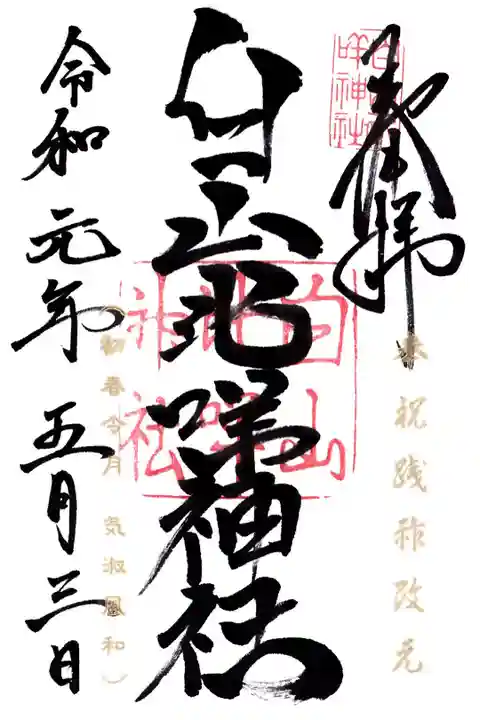 奉拝
白山比咩神社
奉祝践祚改元
白山比咩神社
白山比咩神社
令和元年五月三日
（初春令月 気淑風和）